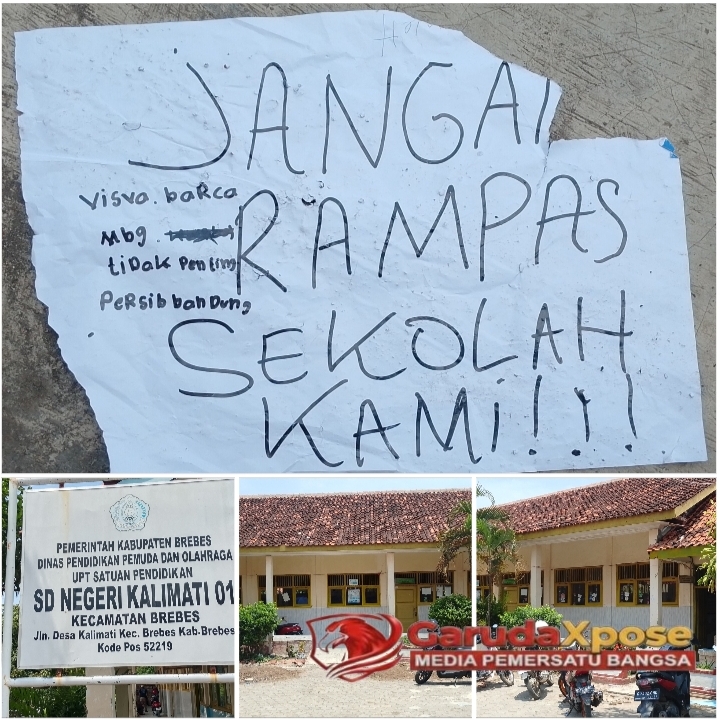 JANGAN
RAMPAS
SEKOLAH
KAMI!!!!
visva.baRca
Mbg
tiDak Penting
PeRsib banDung
PEMERINTAH KABUPATEN BREBES
DINAS PENDIDIKAN PEMUDA DAN OLAHRAGA
UPT SATUAN PENDIDIKAN
SD NEGERI KALIMATI 01
KECAMATAN BREBES
Jln. Desa Kalimati Kec. Brebes Kab.Brebes
Kode Pos 52219
GarudaXpose
MEDIA PEMERSATU BANGSA